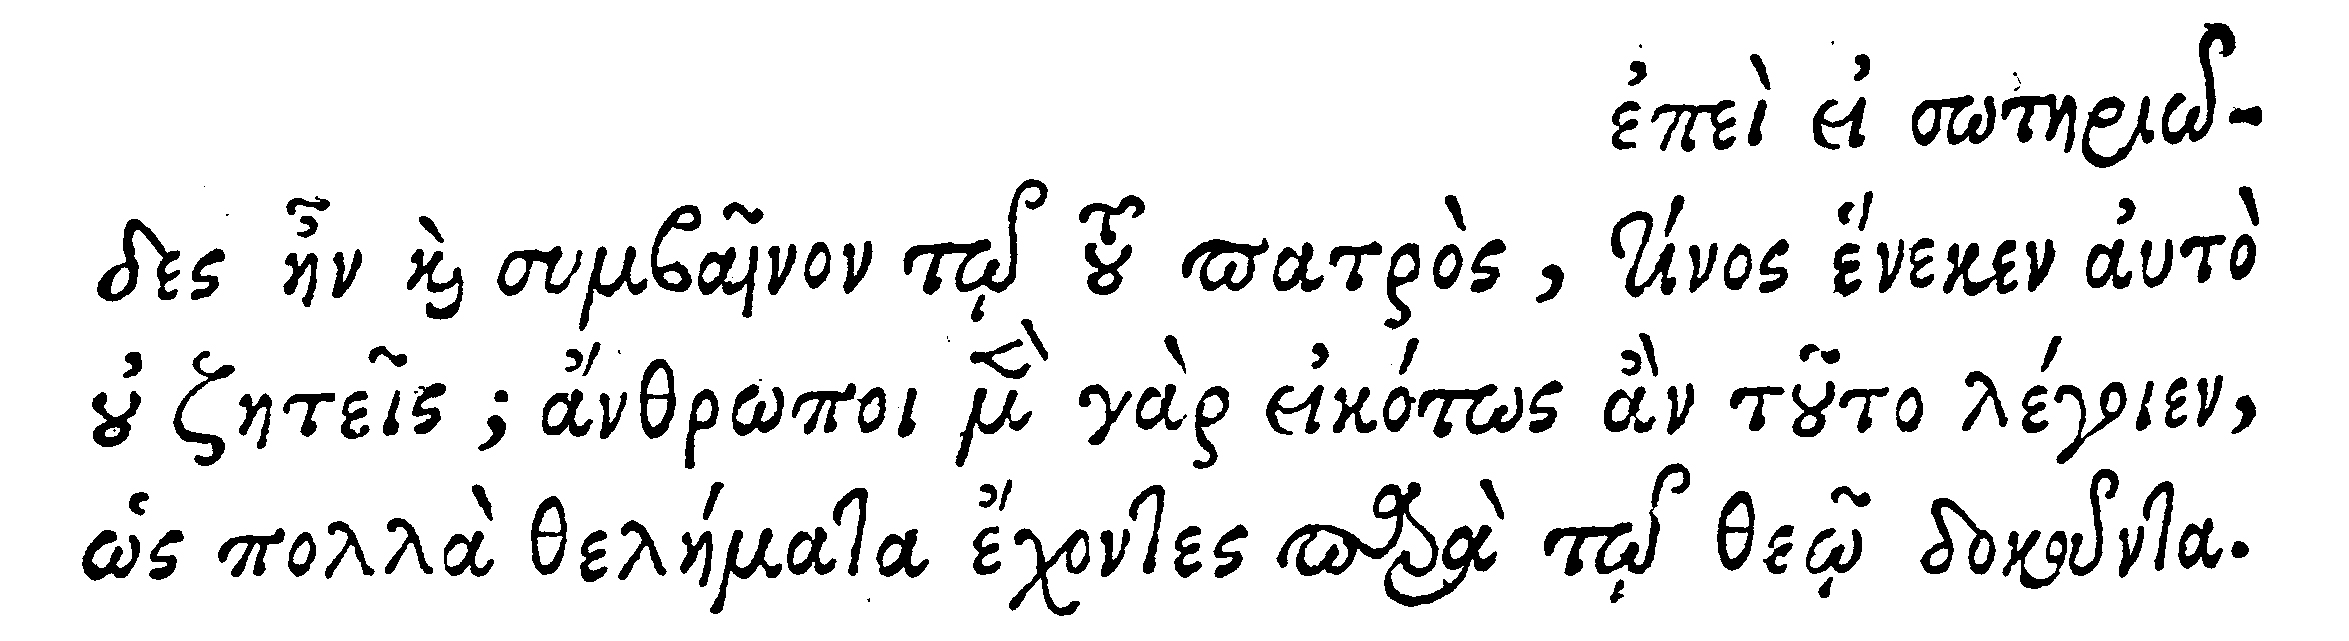 ἐπεὶ εἰ σωτηριῶ-
δες ἦν καὶ συμβαῖνον τῷ τοῦ πατρὸς, τίνος ἕνεκεν αὐτὸ
οὐ ζητεῖς; ἄνθρωποι μὲν γὰρ εἰκότως ἂν τοῦτο λέγοιεν,
ὡς πολλὰ θελήματα ἔχοντες παρὰ τῷ θεῷ δοκοῦντα.